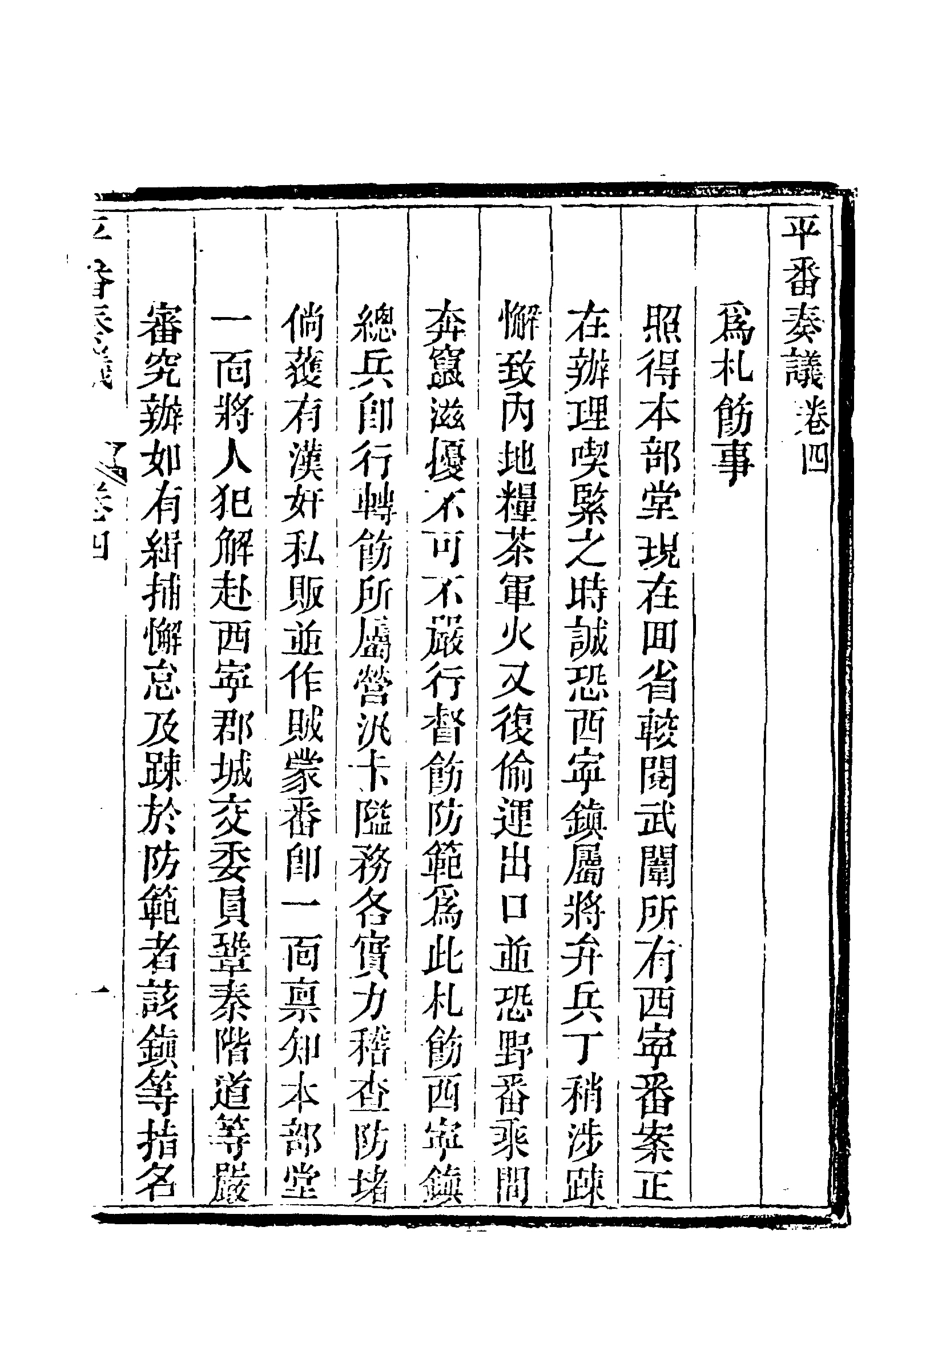 平番奏議卷四
爲札飭事
照得本部堂現在囬省較閱武闈所有西寧番案正
在辦理喫緊之時誠恐西寧鎮屬將弁兵丁稍涉踈
懈致內地糧茶軍火又復偷運出口並恐野番乘間
奔竄滋擾不可不嚴行督飭防範爲此札飭西寧鎮
總兵卽行轉飭所屬營汛卡隘務各實力稽查防堵
倘獲有漢奸私販並作賊蒙番卽一面稟知本部堂
一面將人犯解赴西寧郡城交委員鞏秦階道等嚴
審究辦如有緝捕懈怠及踈於防範者該鎮等指名
平番奏議 卷四 一